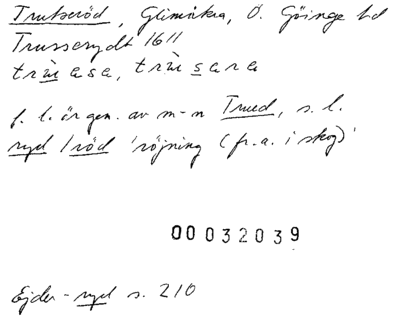 Trulseröd, Glimåkra, Ö. Göinge hd
Trusserydt 1611
f. l. är gen. av m-n Trued, s. l.
ryd / röd 'röjning (fr. a. i skog)'
00032039
Ejder - ryd s. 210